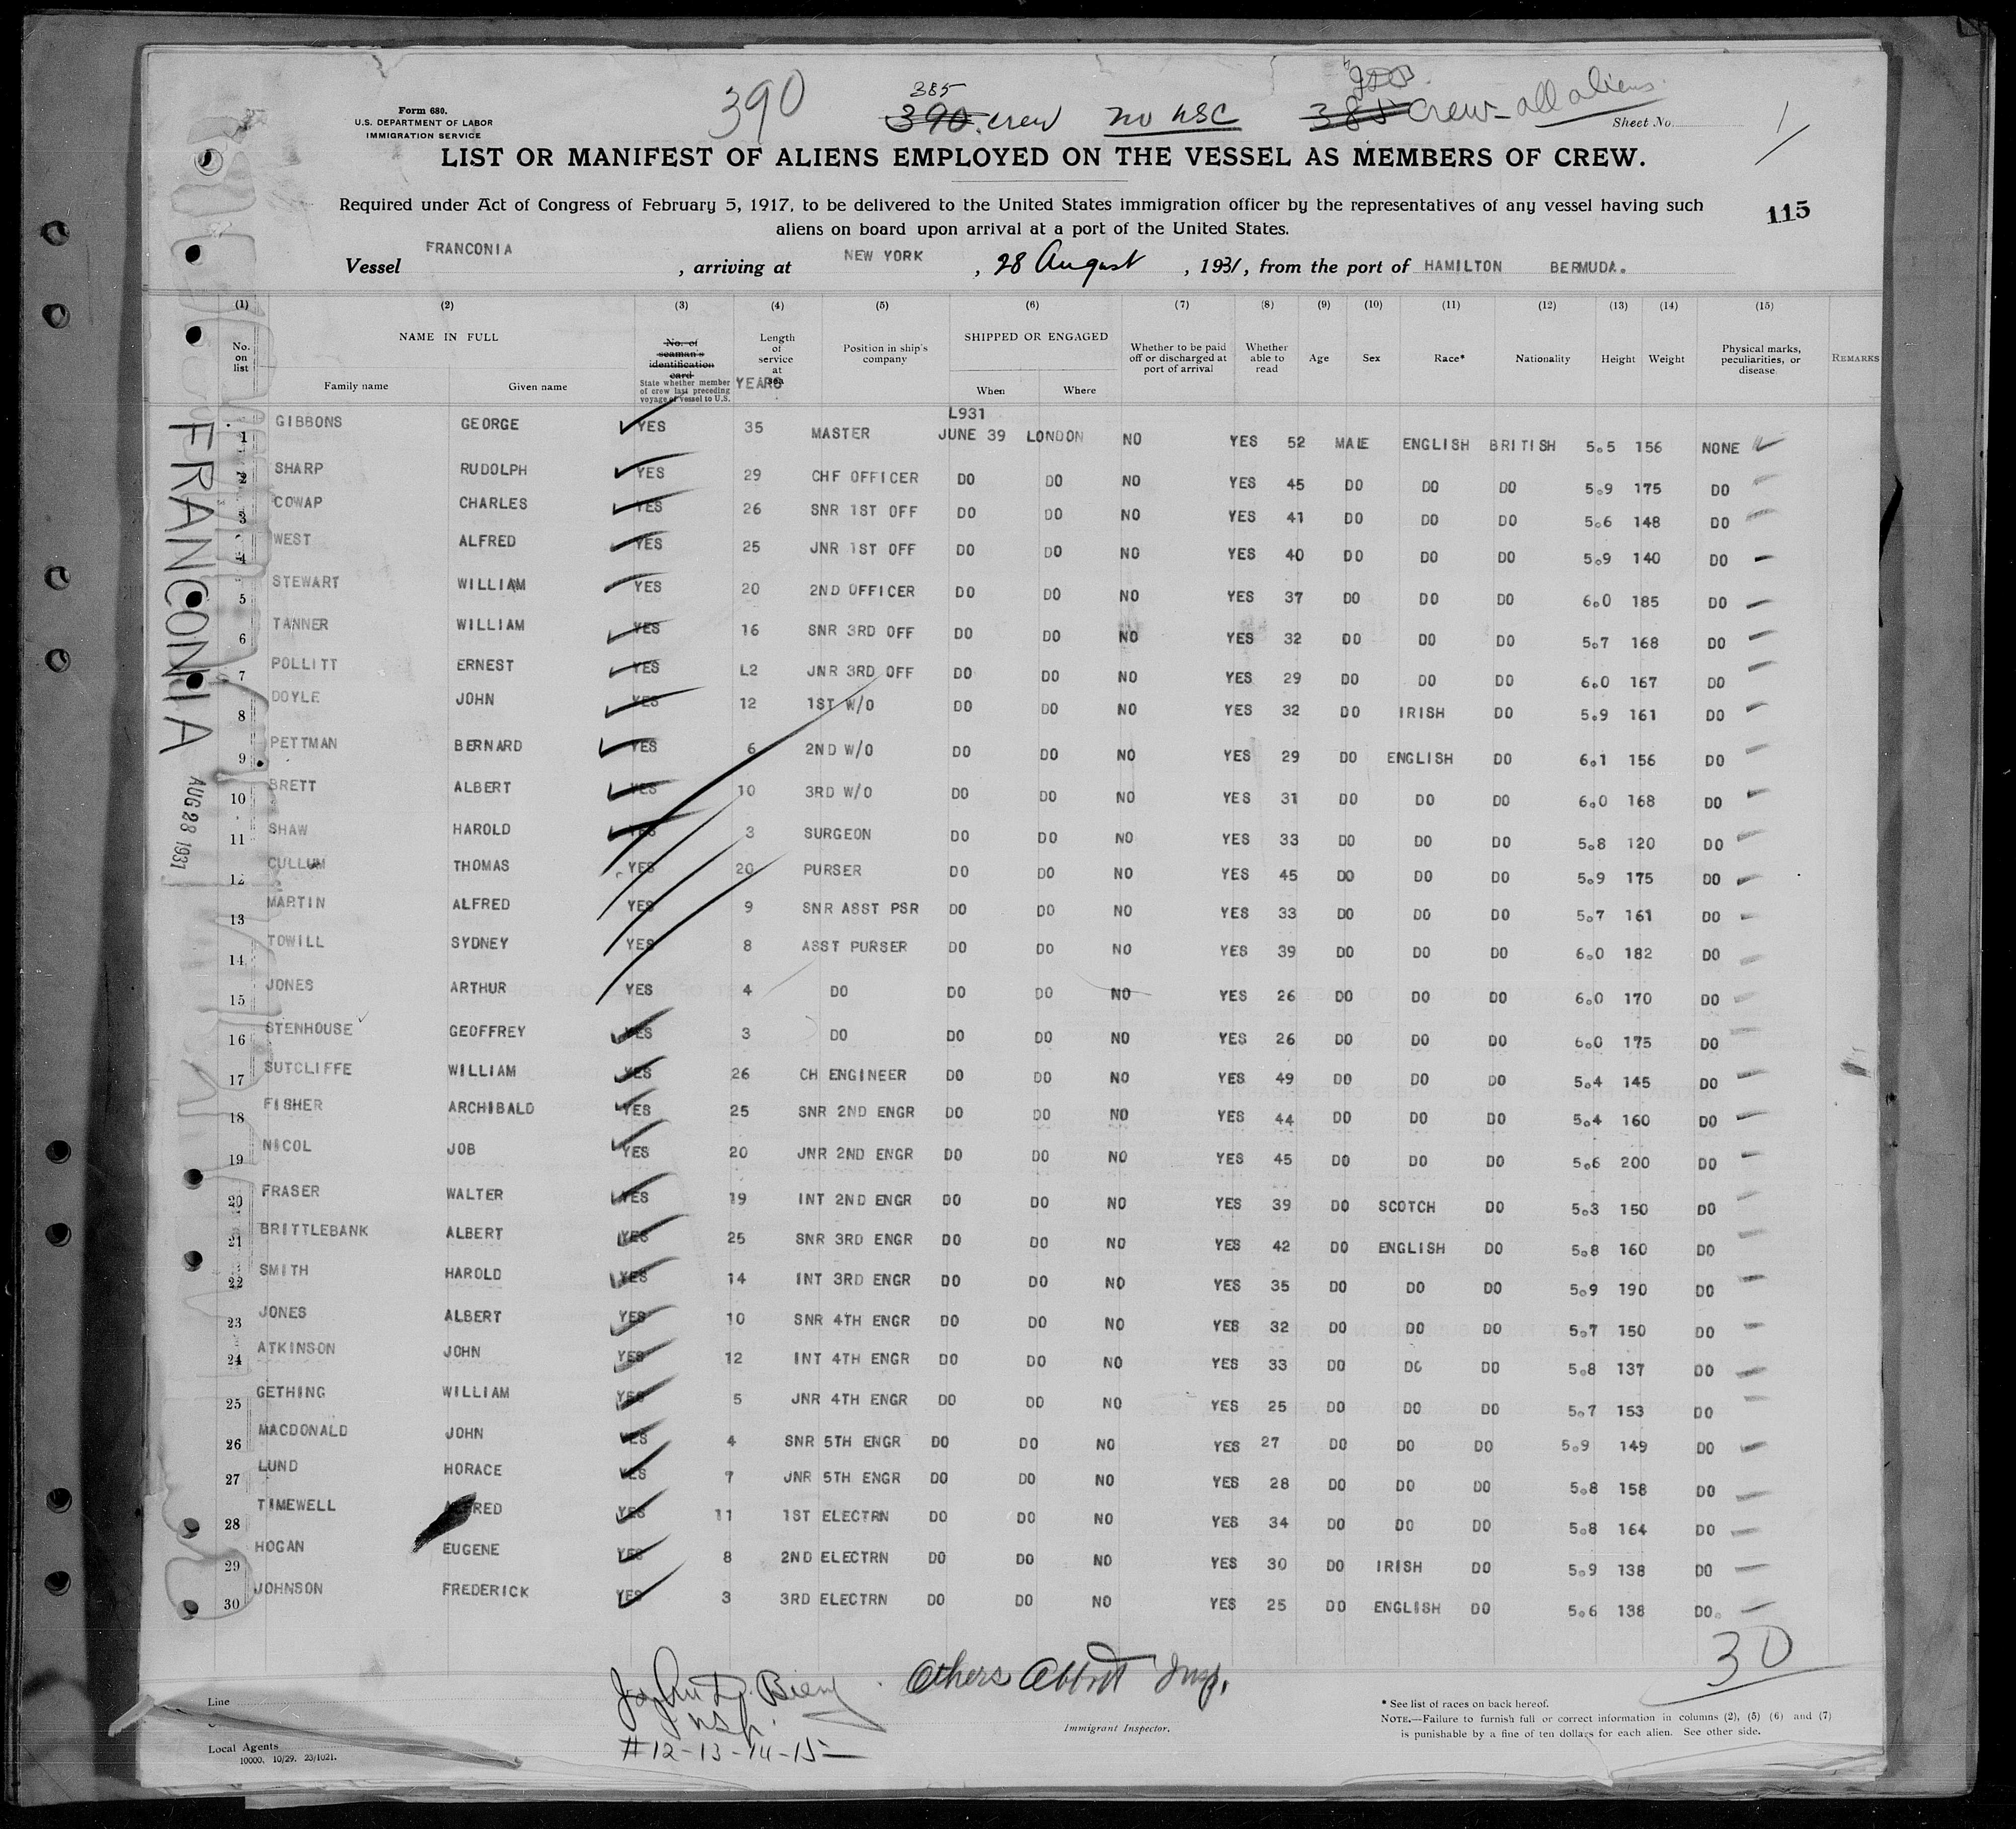 Form 680.
U.S. DEPARTMENT OF LABOR
IMMIGRATION SERVICE
390
385
390. crew no USC
385 crew - all aliens
Sheet No. 1
LIST OR MANIFEST OF ALIENS EMPLOYED ON THE VESSEL AS MEMBERS OF CREW.
Required under Act of Congress of February 5, 1917, to be delivered to the United States immigration officer by the representatives of any vessel having such
aliens on board upon arrival at a port of the United States.
115
Vessel FRANCONIA, arriving at NEW YORK, 28 August, 1931, from the port of HAMILTON BERMUDA.
(1) (2) (3) (4) (5) (6) (7) (8) (9) (10) (11) (12) (13) (14) (15)
No. on list
NAME IN FULL
Family name Given name
No. of seaman's identification card
State whether member of crew last preceding voyage of vessel to U.S.
Length of service at sea YEARS
Position in ship's company
SHIPPED OR ENGAGED
When Where
Whether to be paid off or discharged at port of arrival
Whether able to read
Age Sex Race* Nationality Height Weight
Physical marks, peculiarities, or disease.
REMARKS
L931
1 GIBBONS GEORGE YES 35 MASTER JUNE 39 LONDON NO YES 52 MALE ENGLISH BRITISH 5.5 156 NONE
2 SHARP RUDOLPH YES 29 CHF OFFICER DO DO NO YES 45 DO DO DO 5.9 175 DO
3 COWAP CHARLES YES 26 SNR 1ST OFF DO DO NO YES 41 DO DO DO 5.6 148 DO
4 WEST ALFRED YES 25 JNR 1ST OFF DO DO NO YES 40 DO DO DO 5.9 140 DO
5 STEWART WILLIAM YES 20 2ND OFFICER DO DO NO YES 37 DO DO DO 6.0 185 DO
6 TANNER WILLIAM YES 16 SNR 3RD OFF DO DO NO YES 32 DO DO DO 5.7 168 DO
7 POLLITT ERNEST YES L2 JNR 3RD OFF DO DO NO YES 29 DO DO DO 6.0 167 DO
8 DOYLE JOHN YES 12 1ST W/O DO DO NO YES 32 DO IRISH DO 5.9 161 DO
9 PETTMAN BERNARD YES 6 2ND W/O DO DO NO YES 29 DO ENGLISH DO 6.1 156 DO
10 BRETT ALBERT YES 10 3RD W/O DO DO NO YES 31 DO DO DO 6.0 168 DO
11 SHAW HAROLD YES 3 SURGEON DO DO NO YES 33 DO DO DO 5.8 120 DO
12 CULLUM THOMAS YES 20 PURSER DO DO NO YES 45 DO DO DO 5.9 175 DO
13 MARTIN ALFRED YES 9 SNR ASST PSR DO DO NO YES 33 DO DO DO 5.7 161 DO
14 TOWILL SYDNEY YES 8 ASST PURSER DO DO NO YES 39 DO DO DO 6.0 182 DO
15 JONES ARTHUR YES 4 DO DO DO NO YES 26 DO DO DO 6.0 170 DO
16 STENHOUSE GEOFFREY YES 3 DO DO DO NO YES 26 DO DO DO 6.0 175 DO
17 SUTCLIFFE WILLIAM YES 26 CH ENGINEER DO DO NO YES 49 DO DO DO 5.4 145 DO
18 FISHER ARCHIBALD YES 25 SNR 2ND ENGR DO DO NO YES 44 DO DO DO 5.4 160 DO
19 NICOL JOB YES 20 JNR 2ND ENGR DO DO NO YES 45 DO DO DO 5.6 200 DO
20 FRASER WALTER YES 19 INT 2ND ENGR DO DO NO YES 39 DO SCOTCH DO 5.3 150 DO
21 BRITTLEBANK ALBERT YES 25 SNR 3RD ENGR DO DO NO YES 42 DO ENGLISH DO 5.8 160 DO
22 SMITH HAROLD YES 14 INT 3RD ENGR DO DO NO YES 35 DO DO DO 5.9 190 DO
23 JONES ALBERT YES 10 SNR 4TH ENGR DO DO NO YES 32 DO DO DO 5.7 150 DO
24 ATKINSON JOHN YES 12 INT 4TH ENGR DO DO NO YES 33 DO DO DO 5.8 137 DO
25 GETHING WILLIAM YES 5 JNR 4TH ENGR DO DO NO YES 25 DO DO DO 5.7 153 DO
26 MACDONALD JOHN YES 4 SNR 5TH ENGR DO DO NO YES 27 DO DO DO 5.9 149 DO
27 LUND HORACE YES 7 JNR 5TH ENGR DO DO NO YES 28 DO DO DO 5.8 158 DO
28 TIMEWELL YES 11 1ST ELECTRN DO DO NO YES 34 DO DO DO 5.8 164 DO
29 HOGAN EUGENE YES 8 2ND ELECTRN DO DO NO YES 30 DO IRISH DO 5.9 138 DO
30 JOHNSON FREDERICK YES 3 3RD ELECTRN DO DO NO YES 25 DO ENGLISH DO 5.6 138 DO.
FRANCONIA
AUG 28 1931
30
John D. Insp.
#12-13-14-15-
Others Abbott Insp.
Immigrant Inspector.
Line
Local Agents
10000. 10/29. 23/1021.
* See list of races on back hereof.
NOTE.—Failure to furnish full or correct information in columns (2), (5) (6) and (7)
is punishable by a fine of ten dollars for each alien. See other side.